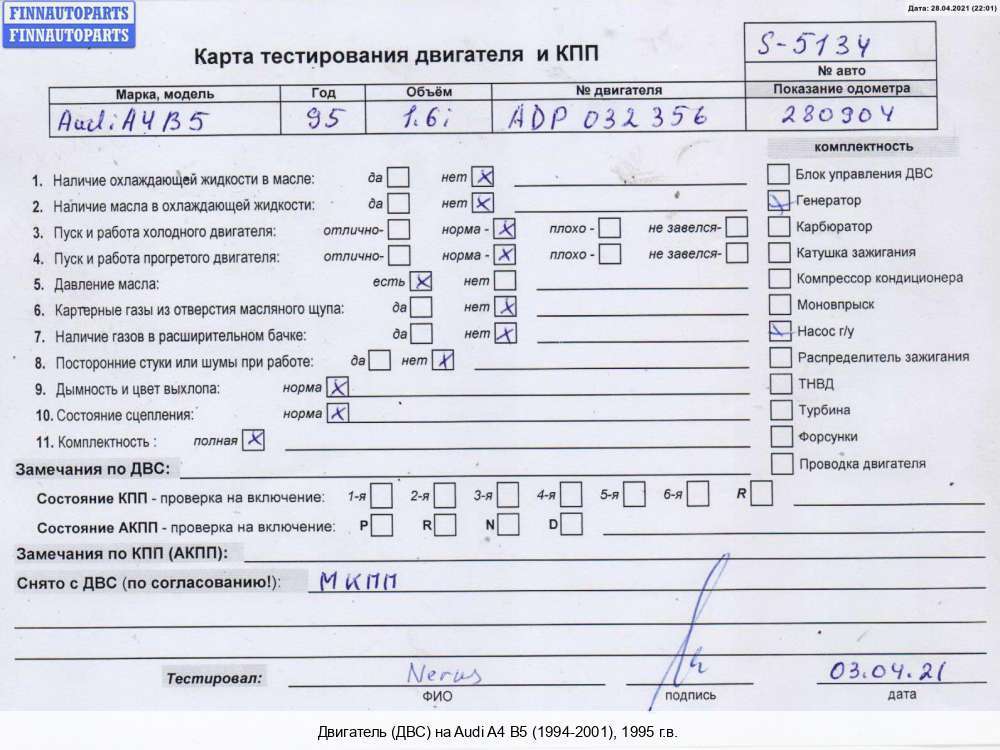 FINNAUTOPARTS
FINNAUTOPARTS
Дата: 28.04.2021 (22:01)
Карта тестирования двигателя и КПП
S-5134
№ авто
Марка, модель Год Объём № двигателя Показание одометра
Audi A4 B5 95 1.6i ADP 032356 280904
комплектность
1. Наличие охлаждающей жидкости в масле: да нет X
2. Наличие масла в охлаждающей жидкости: да нет X
3. Пуск и работа холодного двигателя: отлично- норма - X плохо - не завелся-
4. Пуск и работа прогретого двигателя: отлично- норма - X плохо - не завелся-
5. Давление масла: есть X нет
6. Картерные газы из отверстия масляного щупа: да нет X
7. Наличие газов в расширительном бачке: да нет X
8. Посторонние стуки или шумы при работе: да нет X
9. Дымность и цвет выхлопа: норма X
10. Состояние сцепления: норма X
11. Комплектность : полная X
Блок управления ДВС
X Генератор
Карбюратор
Катушка зажигания
Компрессор кондиционера
Моновпрыск
X Насос г/у
Распределитель зажигания
ТНВД
Турбина
Форсунки
Проводка двигателя
Замечания по ДВС:
Состояние КПП - проверка на включение: 1-я 2-я 3-я 4-я 5-я 6-я R
Состояние АКПП - проверка на включение: P R N D
Замечания по КПП (АКПП):
Снято с ДВС (по согласованию!): МКПП
Тестировал: 03.04.21
ФИО подпись дата
Двигатель (ДВС) на Audi A4 B5 (1994-2001), 1995 г.в.